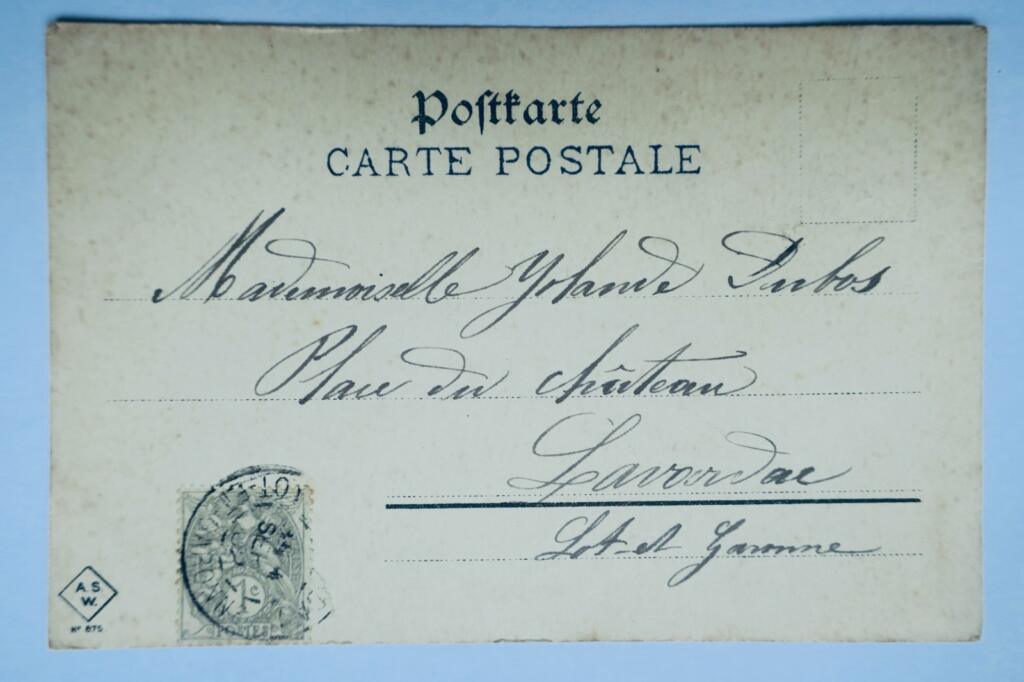 Postkarte
CARTE POSTALE
Mademoiselle Yolande Dubos
Place du château
Lavardac
Lot et Garonne
1c
POSTES
A S
W.
Nº 675